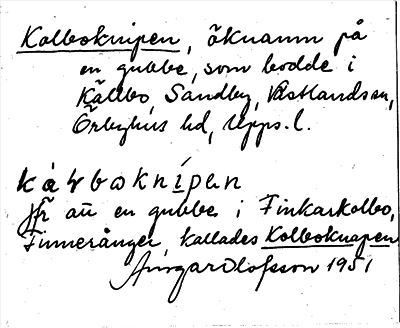 Kolboknipen, öknamn på
en gubbe, som bodde i
Källbo, Sandby, Västlandssn,
Örbyhus hd, Upps. l.
kåɽboknípen
Jfr än en gubbe i Finkarkolbo,
Finnerånger, kallades Kolboknapen
Ansgar Olofsson 1951